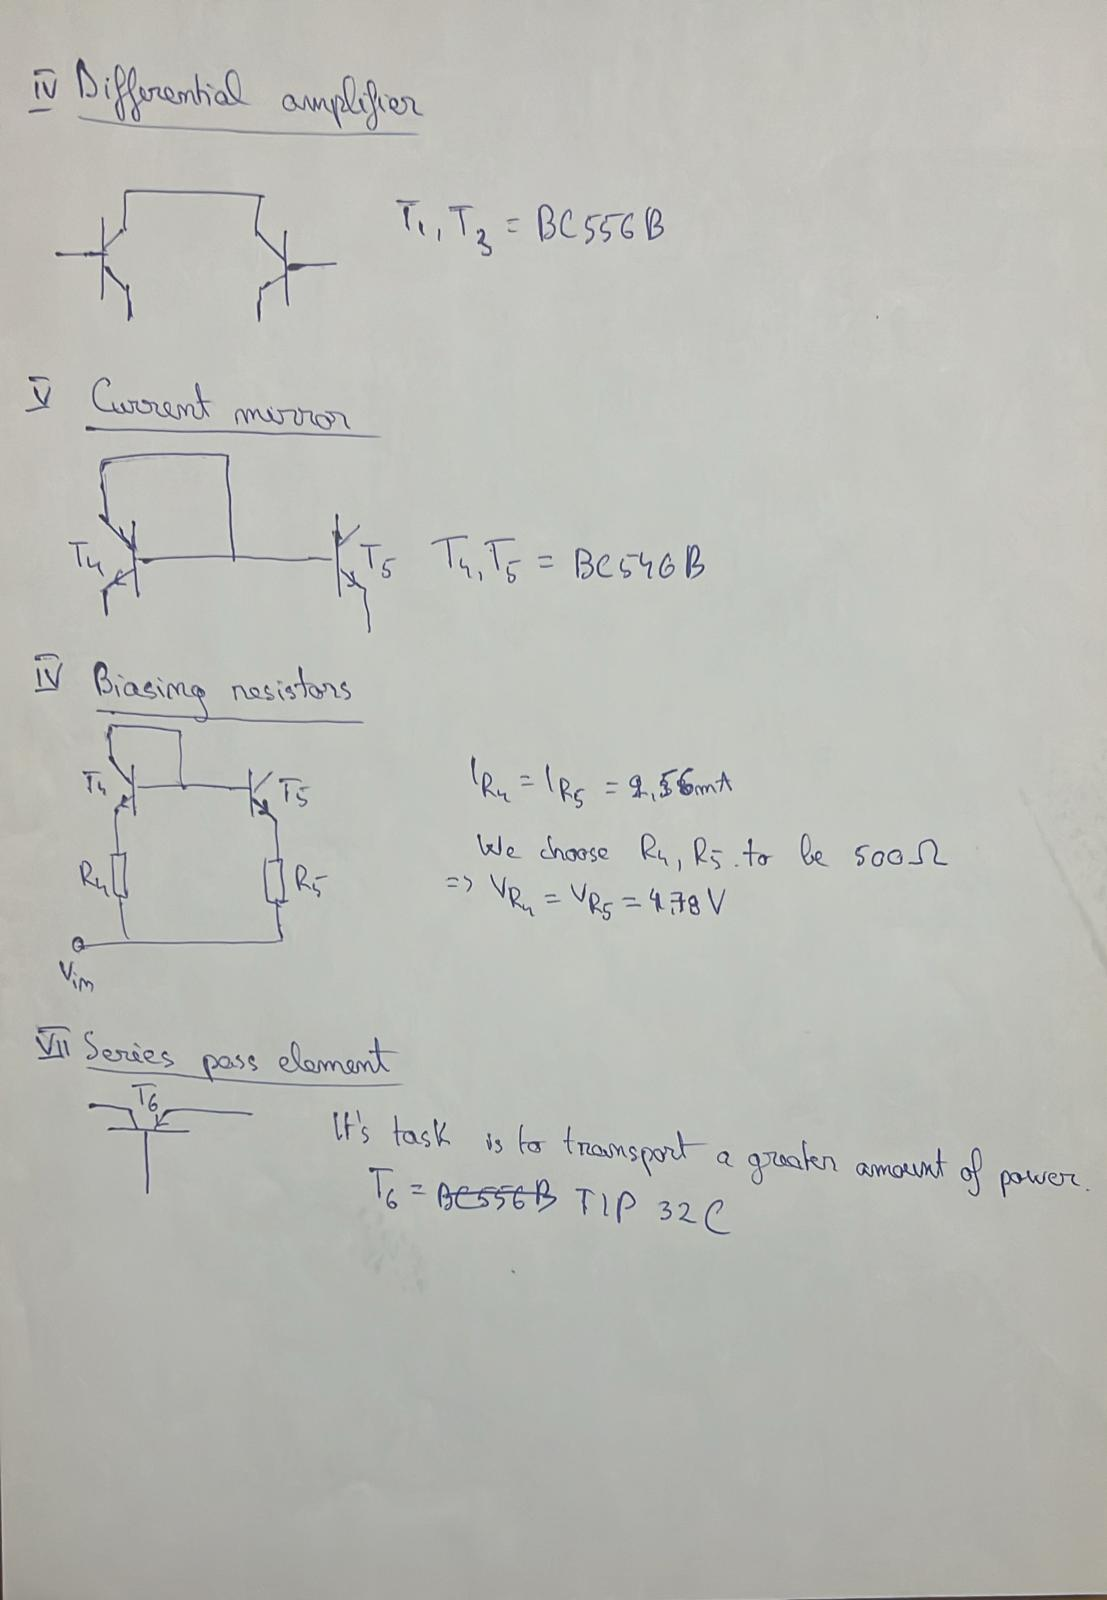 IV Differential amplifier
T1, T3 = BC556B
V Current mirror
T4 T5 T4, T5 = BC546B
IV Biasing resistors
T4 T5
IR4 = IR5 = 56mA
We choose R4, R5 to be 500Ω
R4 R5
=> VR4 = VR5 = 78 V
Vin
VII Series pass element
T6
It's task is to transport a greater amount of power.
T6 = BC556B TIP 32C